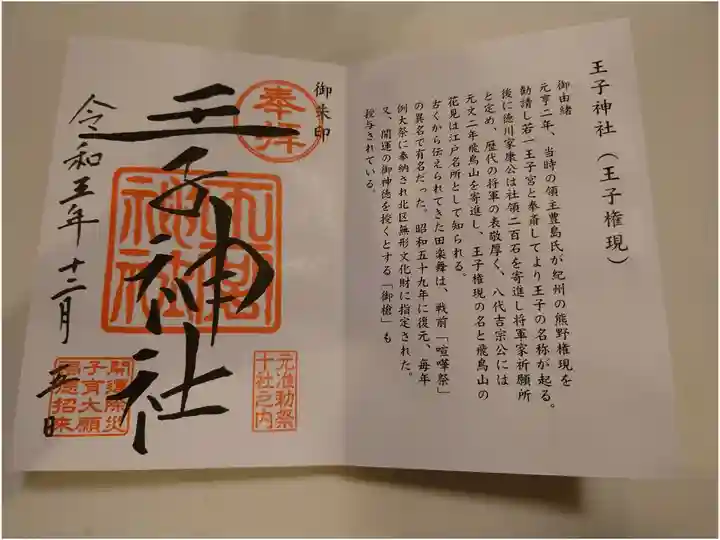 王子神社(王子権現)
御由緒
元亨二年、当時の領主豊島氏が紀州の熊野権現を
勧請し若一王子宮と奉斎してより王子の名称が起る。
後に徳川家康公は社領二百石を寄進し将軍家祈願所
と定め、歴代の将軍の表敬厚く、八代吉宗公には
元文二年飛鳥山を寄進し、王子権現の名と飛鳥山の
花見は江戸名所として知られる。
古くから伝えられてきた田楽舞は、戦前「喧嘩祭」
の異名で有名だった。昭和五十九年に復元、毎年
例大祭に奉納され北区無形文化財に指定された。
又、開運の御神徳を授くとする「御槍」も
授与されている。
御朱印
奉拝
王子神社
王子神社
元准勅祭
十社之内
令和三年十二月五日
開運除災
子育大願
福徳招来